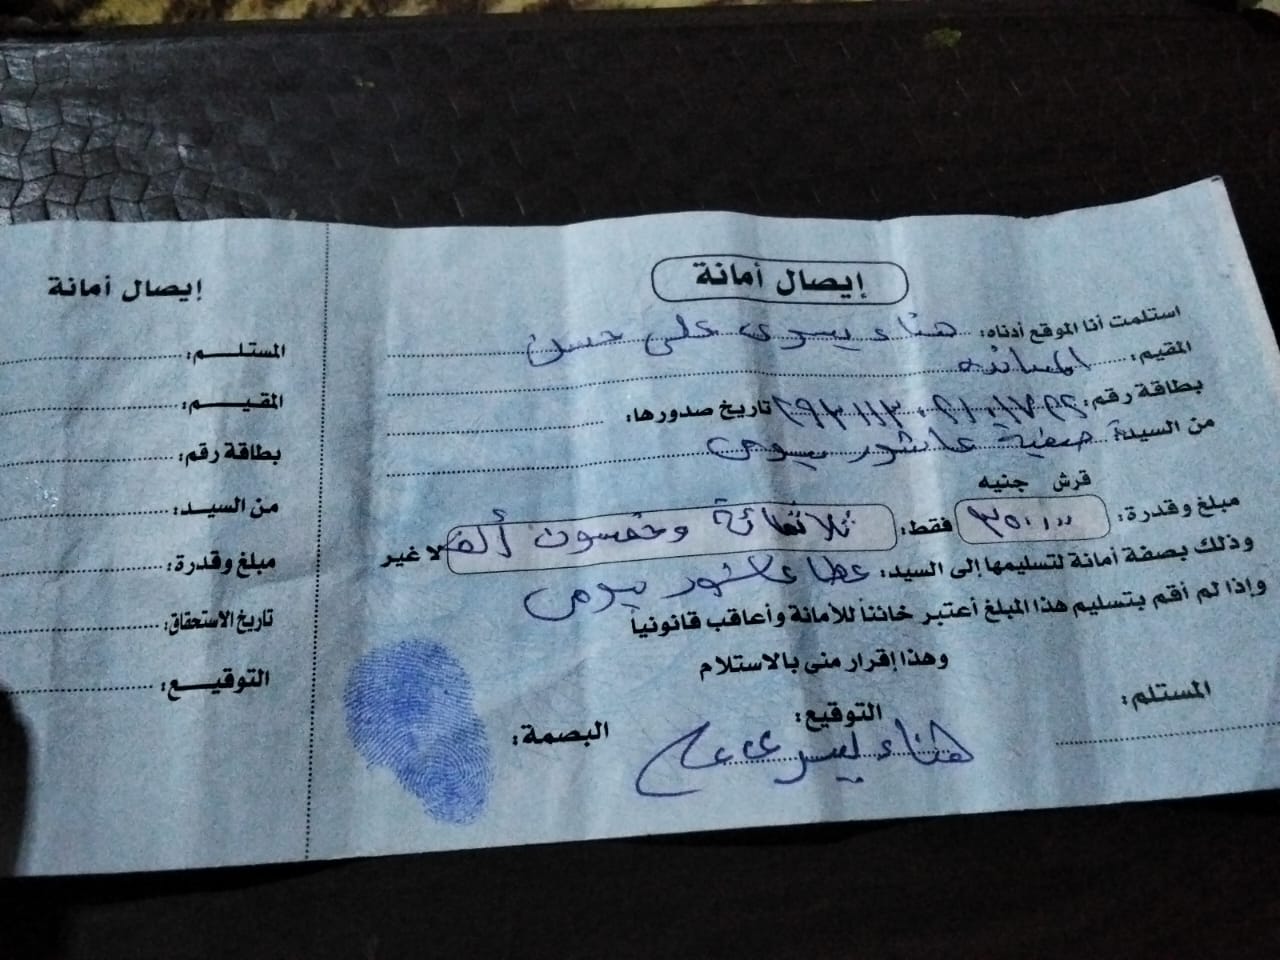 إيصال أمانة
استلمت أنا الموقع أدناه: هناء يسرى على حسن
المقيم:
بطاقة رقم: تاريخ صدورها:
من السيدة صفية عاشور بيومى
قرش جنيه
مبلغ وقدرة: ٣٥٠٠٠٠ فقط: ثلاثمائة وخمسون ألف لا غير
وذلك بصفة أمانة لتسليمها إلى السيد: عطا عاشور بيومى
وإذا لم أقم بتسليم هذا المبلغ أعتبر خائناً للأمانة وأعاقب قانونياً
وهذا إقرار منى بالاستلام
المستلم: التوقيع: البصمة:
هناء يسرى
إيصال أمانة
المستلم:
المقيم:
بطاقة رقم:
من السيد:
مبلغ وقدرة:
تاريخ الاستحقاق:
التوقيع: